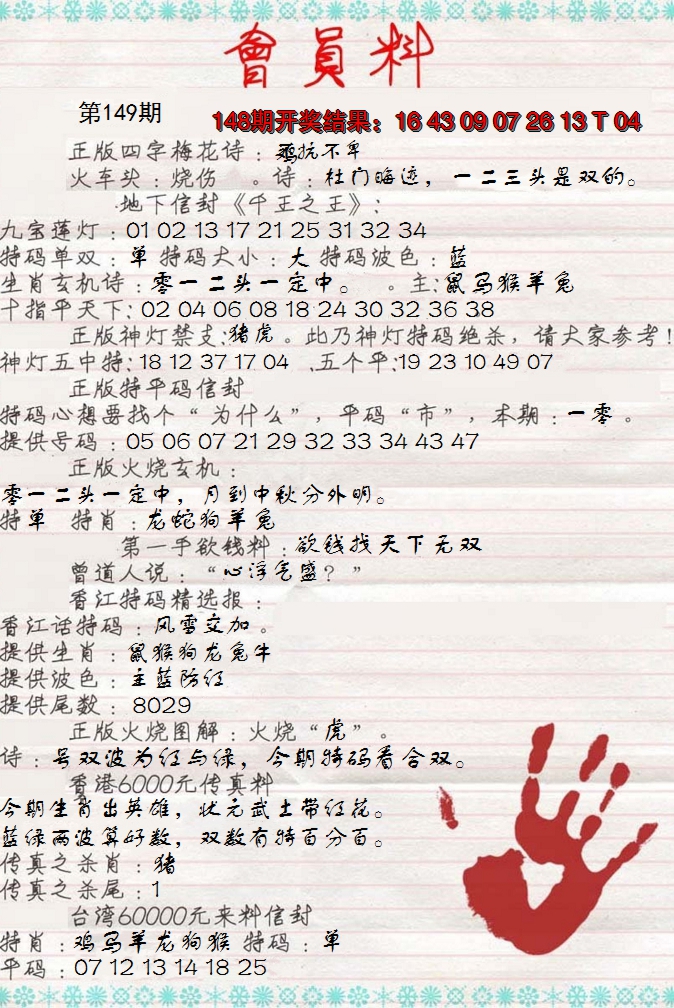 會員料
第149期
148期开奖结果：16 43 09 07 26 13 T 04
正版四字梅花诗：鸡抗不卑
火车头：烧伤　。诗：杜门晦迹，一二三头是双的。
地下信封《千王之王》：
九宝莲灯：01 02 13 17 21 25 31 32 34
特码单双：单 特码大小：大 特码波色：蓝
生肖玄机诗：零一二头一定中。　。主：鼠马猴羊兔
十指平天下：02 04 06 08 18 24 30 32 36 38
正版神灯禁支：猪虎。此乃神灯特码绝杀，请大家参考！
神灯五中特：18 12 37 17 04　.五个平：19 23 10 49 07
正版特平码信封
特码心想要找个“为什么”，平码“市”，本期：一零。
提供号码：05 06 07 21 29 32 33 34 43 47
正版火烧玄机：
零一二头一定中，月到中秋分外明。
特单　特肖：龙蛇狗羊兔
第一手欲钱料：欲钱找天下无双
曾道人说：“心浮气盛？”
香江特码精选报：
香江话特码：风雪交加。
提供生肖：鼠猴狗龙兔牛
提供波色：主蓝防红
提供尾数：8029
正版火烧图解：火烧“虎”。
诗：号双波为红与绿，今期特码看合双。
香港6000元传真料
今期生肖出英雄，状元武士带红花。
蓝绿两波算好数，双数有特百分百。
传真之杀肖：猪
传真之杀尾：1
台湾60000元来料信封
特肖：鸡马羊龙狗猴 特码：单
平码：07 12 13 14 18 25